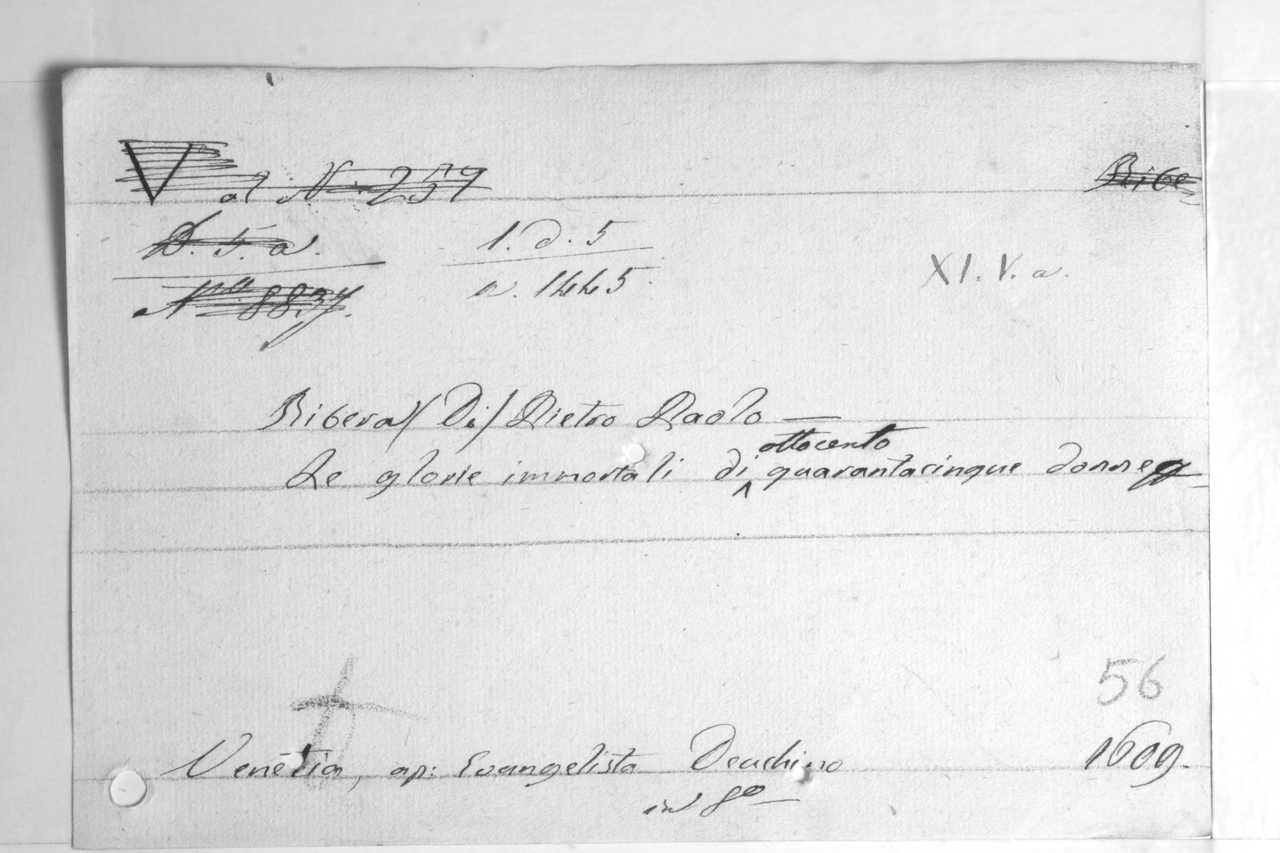 V
al N. 257
Ribe
D. 5. a.
1. d. 5
N.ro 8837.
n. 1445.
XI. V. a.
Ribera / Di / Pietro Paolo —
Le glorie immortali di ottocento quarantacinque donne
56
Venetia, ap: Evangelista Deuchino 1609.
in 8o